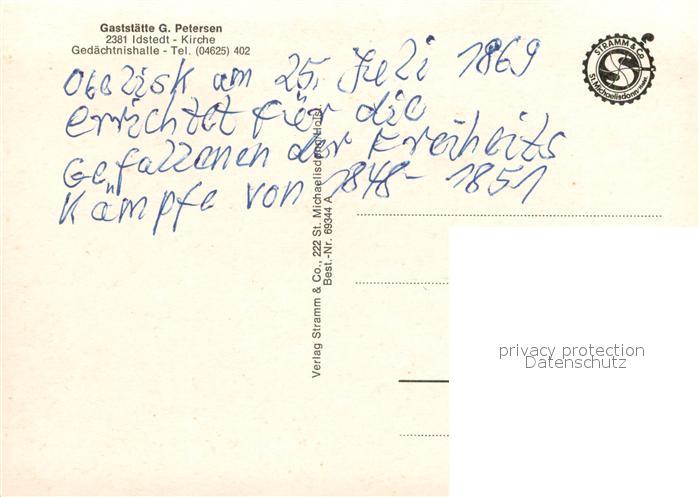 Gaststätte G. Petersen
2381 Idstedt - Kirche
Gedächtnishalle - Tel. (04625) 402
Obelisk am 25. Juli 1869
errichtet für die
Gefallenen der Freiheits
Kämpfe von 1848 - 1851
STRAMM & CO.
St. Michaelisdonn
Verlag Stramm & Co., 222 St. Michaelisdonn/Holst.
Best.-Nr. 69344 A
privacy protection
Datenschutz